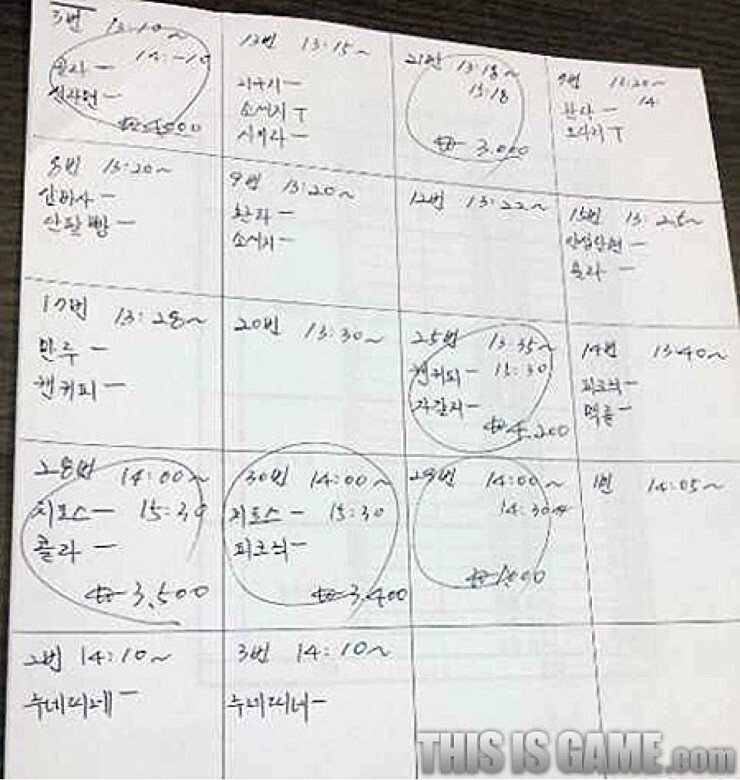 3번 13:10~
콜라 — 14:10
신라면 —
₩4,000
13번 13:15~
소세지 T
21번 13:18~
13:18
₩3,000
13:20~
환타 — 14:
소세지 T
8번 13:20~
단팥빵 —
9번 13:20~
환타 —
소세지 —
12번 13:22~
15번 13:25~
콜라 —
17번 13:28~
만두 —
캔커피 —
20번 13:30~
25번 13:35~
캔커피 — 15:30
자갈치 —
₩4,200
14번 13:40~
피크닉 —
맥콜 —
28번 14:00~
치토스 — 15:30
콜라 —
₩3,500
30번 14:00~
치토스 — 15:30
피크닉 —
₩3,400
29번 14:00~
14:30
₩1,000
1번 14:05~
2번 14:10~
누네띠네 —
3번 14:10~
누네띠네 —
THIS IS GAME.com